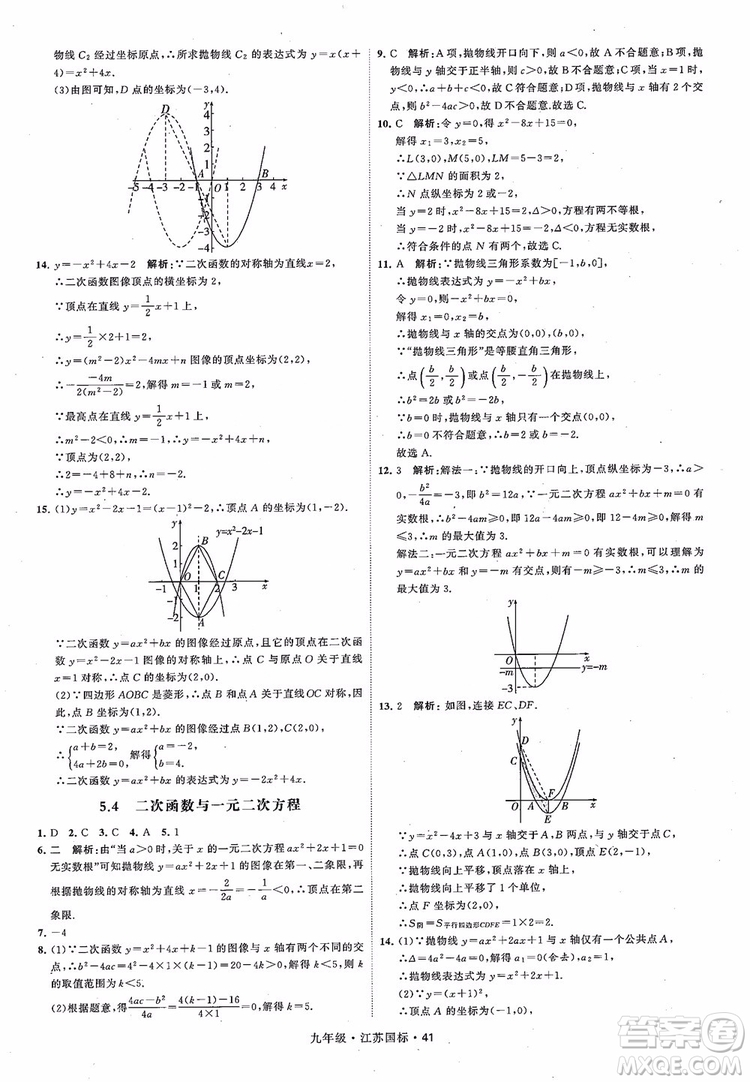 物线 C₂ 经过坐标原点，∴所求抛物线的表达式为 y=x(x+
4)=x²+4x.
(3)由图可知，D 点的坐标为(-3,4).
y
D
4
3
2
1
A
B
-5 -4 -3 -2 -1 O 1 2 3 4 x
-1
-2
-3
-4
14. y=-x²+4x-2 解析：∵二次函数的对称轴为直线x=2，
∴二次函数图像顶点的横坐标为2，
∵顶点在直线 y=1/2x+1上，
∴y=1/2×2+1=2.
∴y=(m²-2)x²-4mx+n 图像的顶点为(2,2)，
∴-(-4m)/(2(m²-2))=2.
∵最高点在直线 y=1/2x+1上，
∴m²-2<0，∴m=-1，
2=-4+8+n，
∴n=-2，
∴y=-x²+4x-2.
15. (1)y=x²-2x-1=(x-1)²-2，∴顶点 A 的坐标为(1,-2).
y
y=x²-2x-1
2
B
1
O
C
-1 1 2 3 x
-1
-2
A
∵二次函数 y=ax²+bx 的图像经过原点，且它的顶点在二次函
数 y=x²-2x-1 图像的对称轴上，∴点 C 和点 O 关于直线
x=1 对称，∴点 C 的坐标为(2,0).
(2)∵四边形 AOBC 是菱形，∴点 B 和点 A 关于直线 OC 对称，
因此，点 B 的坐标为(1,2).
∵二次函数 y=ax²+bx 的图像经过点 B(1,2)，C(2,0)，
∴{a+b=2, 4a+2b=0, 解得{a=-2, b=4.
∴二次函数 y=ax²+bx 的表达式为 y=-2x²+4x.
5.4 二次函数与一元二次方程
1. D 2. C 3. C 4. A 5. 1
6. 二 解析：由“当 a>0 时，关于 x 的一元二次方程 ax²+2x+1=0
无实数根”可知抛物线 y=ax²+2x+1 的图像在第一、二象限，再
根据抛物线的对称轴为直线 x=-2/2a=-1/a<0，∴顶点在第二
象限.
7. -4
8. (1)∵二次函数 y=x²+4x+k-1 的图像与 x 轴有两个不同的交
点，∴b²-4ac=4²-4×1×(k-1)=20-4k>0，解得 k<5，则 k
的取值范围为 k<5.
(2)根据题意，得 (4ac-b²)/4a=(4(k-1)-16)/(4×1)=0，解得 k=5.
9. C 解析：A 项，抛物线开口向下，则 a<0，故 A 不合题意；B 项，抛
物线与 y 轴交于正半轴，则 c>0，故 B 不合题意；C 项，当 x=1 时，
y=a+b+c>0，故 C 符合题意；D 项，抛物线与 x 轴有 2 个交
点，则 b²-4ac>0，故 D 不合题意.故选 C.
10. C 解析：令 y=0，得 x²-8x+15=0，
解得 x₁=3，x₂=5，
∴L(3,0)，M(5,0)，∴LM=2.
∵△LMN 的面积为 2，
∴点 N 点纵坐标为 2 或-2.
当 y=2 时，x²-8x+15=2，Δ>0，方程有两不等根，
当 y=-2 时，x²-8x+15=-2，Δ<0，方程无解，
∴符合条件的点 N 有两个.故选 C.
11. A 解析：∵抛物线三角形系数为[-1,b,0]，
∴抛物线表达式为 y=-x²+bx，
令 y=0，-x²+bx=0，
解得 x₁=0，x₂=b，
∴抛物线与 x 轴的交点为(0,0)，(b,0)，
∵“抛物线三角形”是等腰直角三角形，
∴点(b/2,b/2)或点(b/2,-b/2)在抛物线上，
∴b²=2b 或 b²=-2b，
∵b=0 时，抛物线与 x 轴只有一个交点(0,0)，
∴b=0 不符合题意，∴b=2 或 b=-2.
故选 A.
12. 3 解析：解法一：∵抛物线的开口向上，顶点纵坐标为-3，∴a>
0，-b²/4a=-3，∴b²=12a，∵一元二次方程 ax²+bx+m=0 有
实数根，∴b²-4am≥0，∴12a-4am≥0，即 12-4m≥0，∴m≤3，
∴m 的最大值为 3.
解法二：一元二次方程 ax²+bx+m=0 有实数根，可以理解为
y=ax²+bx 和 y=-m 有交点，则-m≥-3，∴m≤3，∴m 的最
大值为 3.
y
O
x
-m
y=-m
-3
13. 2 解析：如图，连接 EC、DF.
y
D
C
F
O
A
B
x
E
∵y=x²-4x+3 与 x 轴交于点 A、B，与 y 轴交于点 C，
∴点 C 坐标为(0,3)，顶点 E(2,-1)，
∵抛物线向上平移后经过点 D(0,4)，
∴抛物线向上平移了 1 个单位，
∴点 F 坐标为(2,0)，
∴S阴=S平行四边形CDFE=1×2=2.
14. (1)∵抛物线 y=ax²+2ax+1 与 x 轴仅有一个公共点 A，
∴Δ=4a²-4a=0，解得 a₁=0(舍去)，a₂=1，
∴抛物线表达式为 y=x²+2x+1.
∵y=(x+1)²，∴顶点 A 的坐标为(-1,0).
九年级·江苏国标·41
答案圈
MXQE.COM